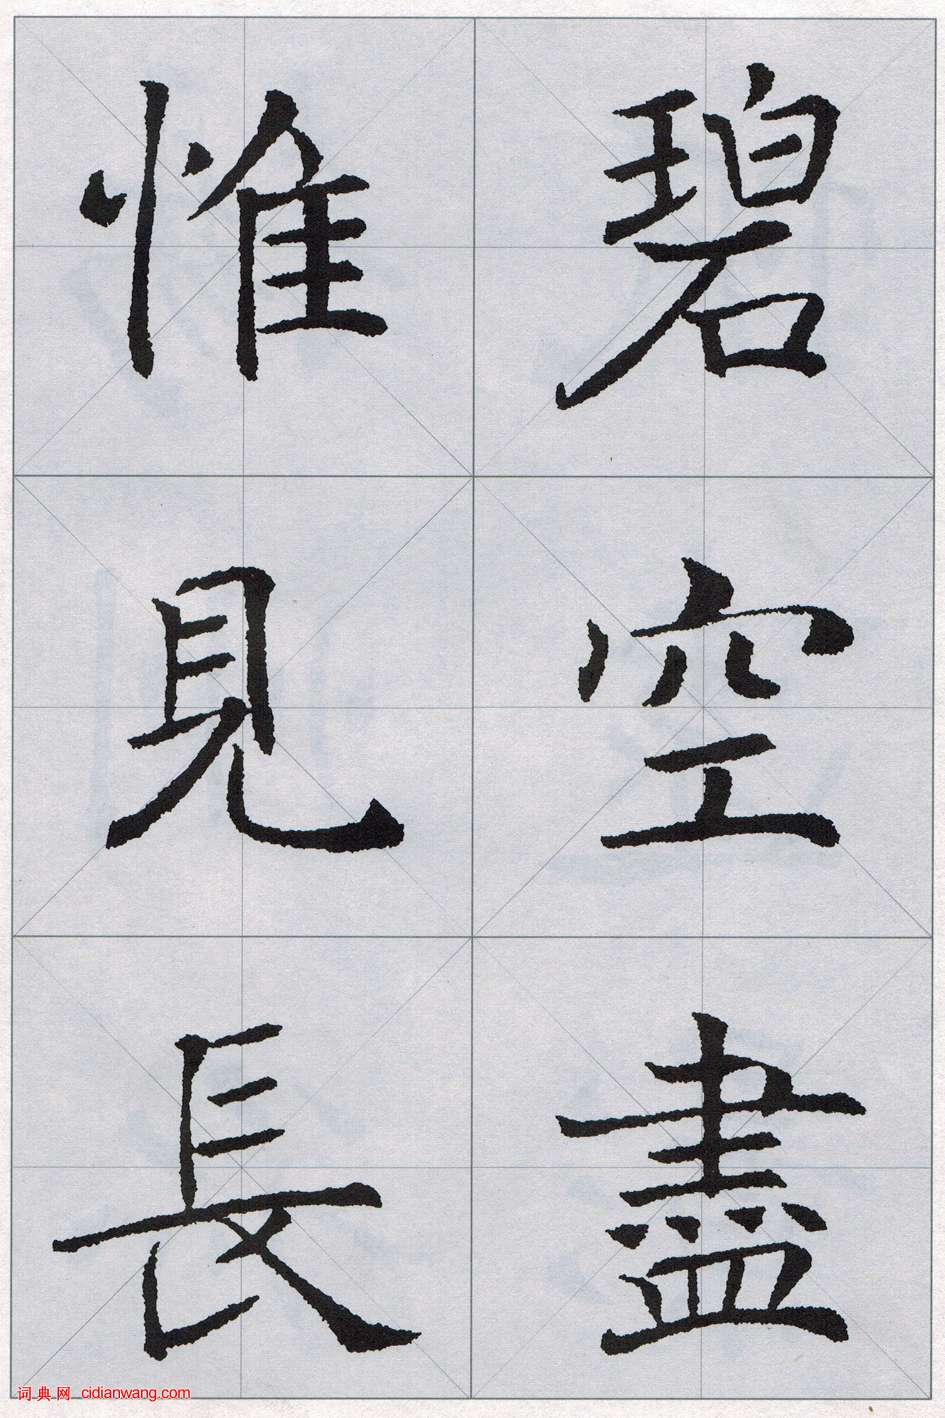 碧空盡
惟見長
词典网 cidianwang.com